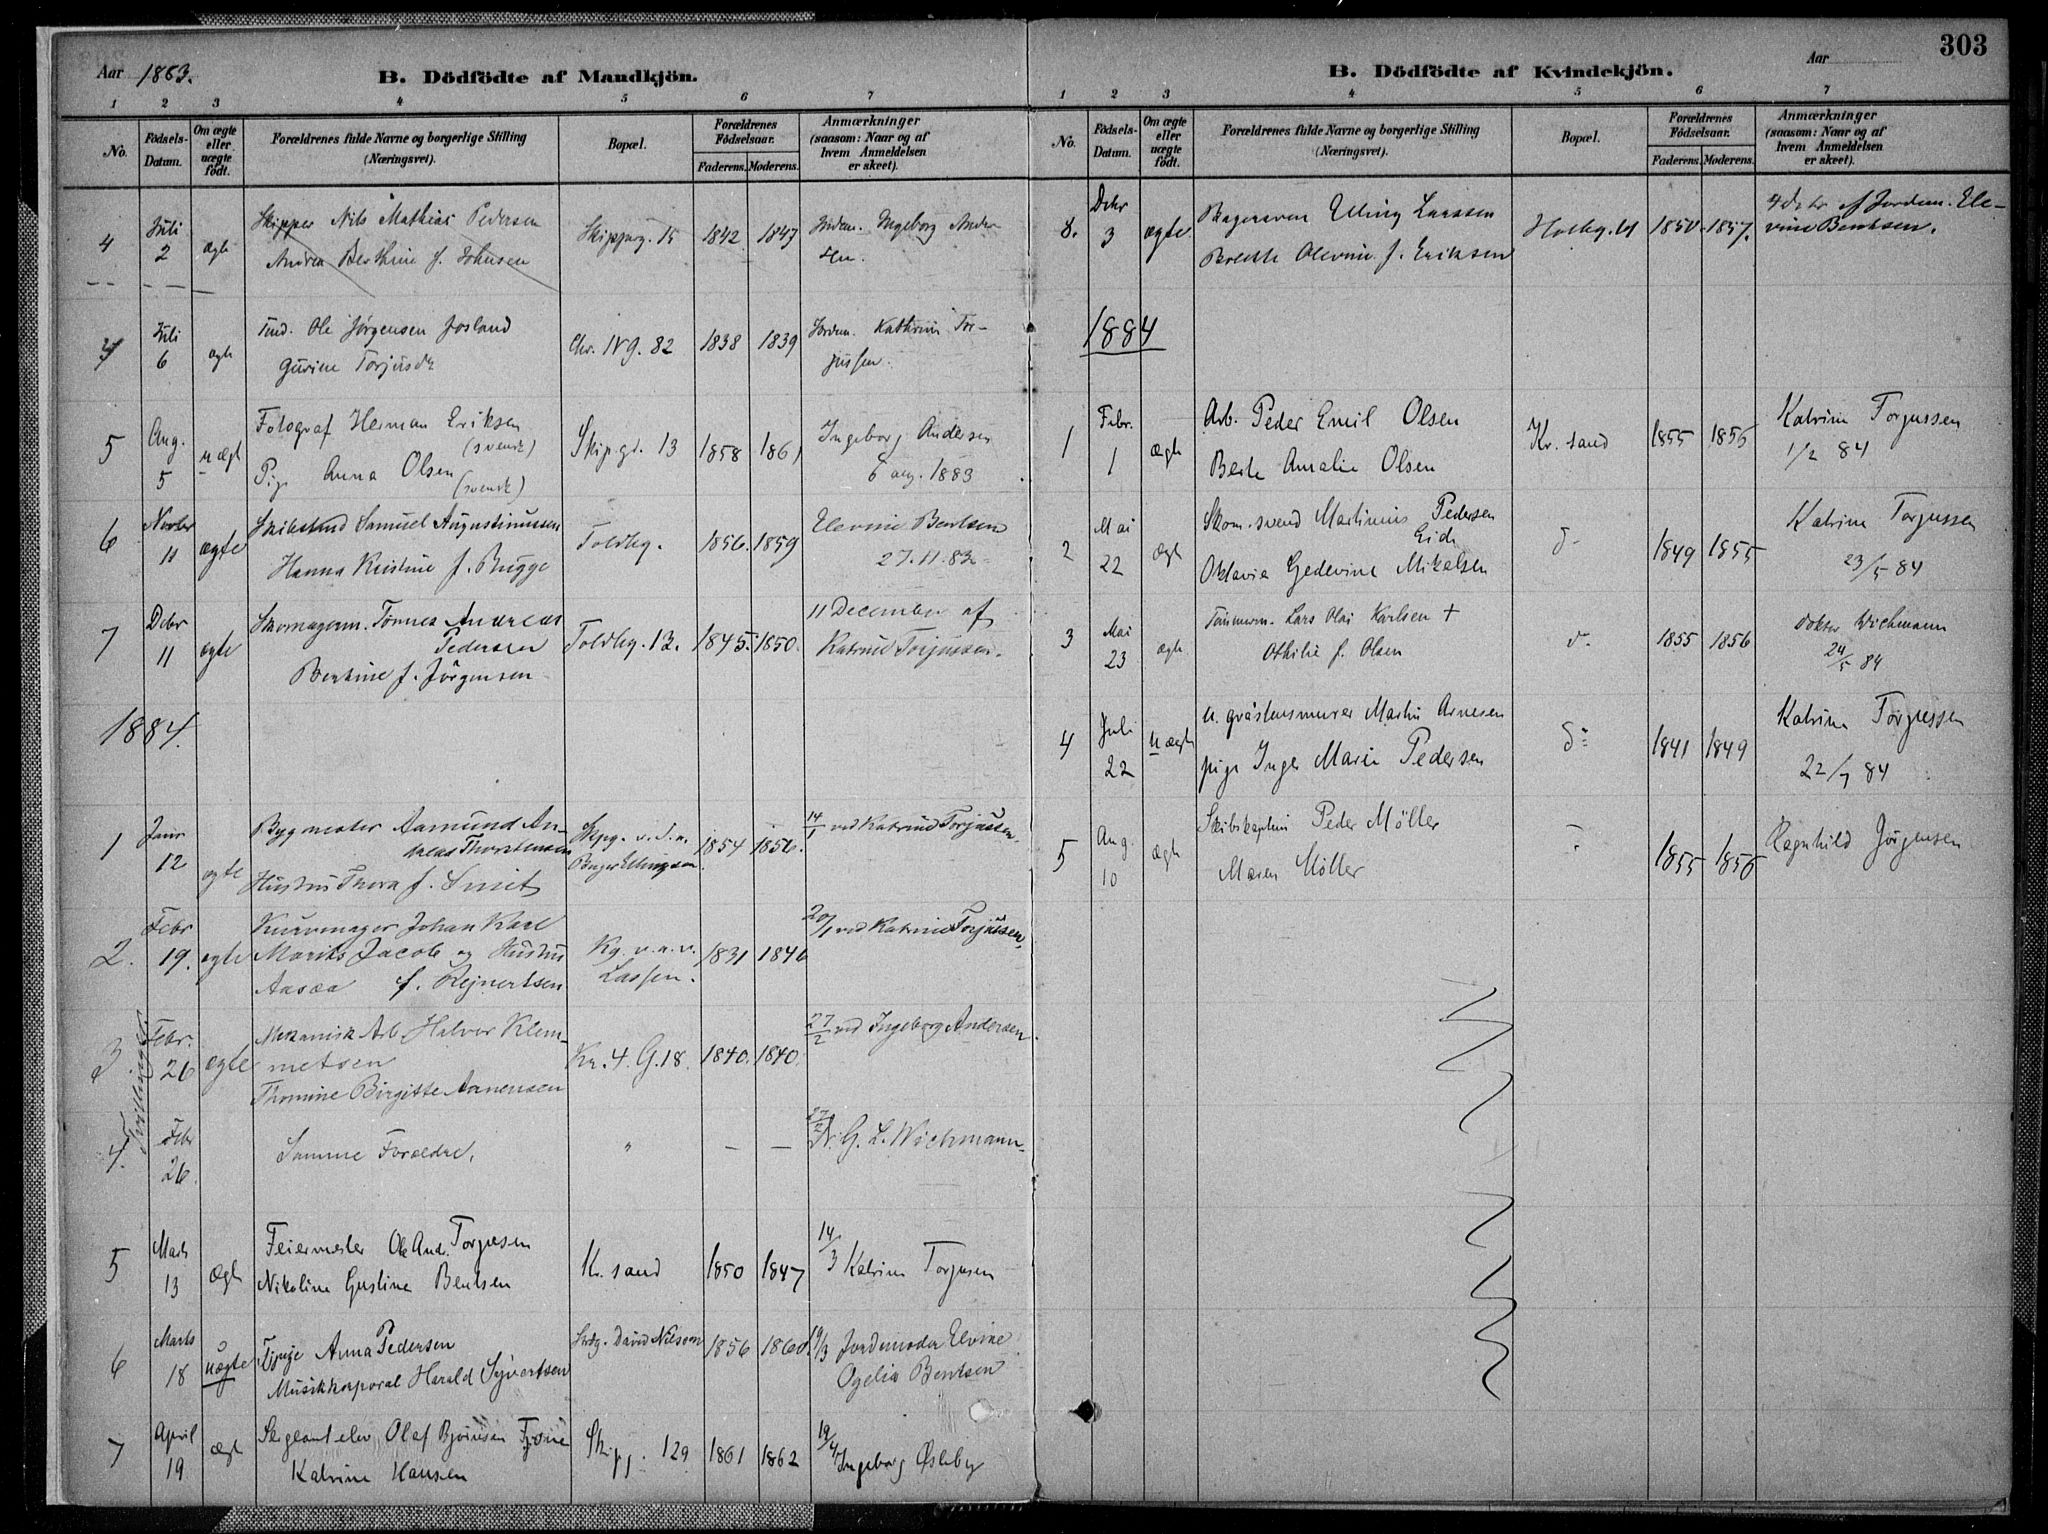 303
Aar 1883.
B. Dödfödte af Mandkjön.
1 2 3 4 5 6 7
No.
Födsels-Datum.
Om ægte eller uægte födt.
Forældrenes fulde Navne og borgerlige Stilling
(Næringsvei).
Bopæl.
Forældrenes Födselsaar.
Faderens. Moderens.
Anmærkninger
(saasom: Naar og af
hvem Anmeldelsen
er skeet).
4 Juli 2 ægte Skipper Nils Mathias Pedersen
Andrea Berthine f. Johnsen
Skipperg. 15 1842 1847 Jordem. Ingeborg Ander
sen.
4 Juli 6 ægte Tind. Ole Jørgensen Josland
Gurine Torjusdr
Chr. IV g. 82 1838 1839 Jordem. Kathrine Tor-
jussen.
5 Aug. 5 uægt Fotograf Herman Eriksen
(svensk)
Pige Anna Olsen (svensk)
Skip.gt. 13 1858 1861 Ingeborg Andersen
6 aug. 1883
6 Novbr 11 ægte Skibstmd Samuel Augustinussen
Hanna Kristine f. Bugge
Toldbg. 1856. 1859 Elevine Bentsen
27.11.83
7 Dcbr 11 ægte Skomagerm. Tönnes Andreas
Pedersen
Bentine f. Jörgensen
Toldbg. 13. 1845. 1850. 11 December af
Katrine Torjussen.
1884.
1 Janr 12 ægte Bygmester Aamund An-
dreas Thorstensen
Hustru Thora f. Smit
Skpg. v. d. a.
Birger Ellingsen
1854 1856. 14/1 ved Katrine Torjussen.
2. Febr 19. ægte Kurvmager Johan Karl
Moritz Jacob og Hustru
Aasæa f. Rejnertsen
Kg. v. a. v.
Lassen.
1831 1840 20/1 ved Katrine Torjussen,
Tvillinger
3 Febr. 26 ægte Mekanisk Arb. Halvor Klem-
metsen
Thomine Birgitte Arnensen
Kr. 4. G. 18. 1840. 1840. 27/2 ved Ingeborg Andersen.
4. Febr 26. Samme Forældre, " — — 27/2 Dr. G. L. Wichmann
5 Marts 13 Ægte Feiermester Ole And. Torjusen
Nikoline Gustina Bentsen
Kr. sand 1850 1847 14/3 Katrine Torjusen
6 Marts 18 uægte Tjpige Anna Pedersen
Musikkorporal Harald Syvertsen
David Nilsson 1856 1860. 19/3 Jordemoder Elvine
Ogelia Bentsen
7 April 19 ægte Sergeantelev Olaf Bjornsen
Katrine Hansen
Skipg. 129 1861 1862 19/4 Ingeborg Østeby
Aar
B. Dödfödte af Kvindekjön.
1 2 3 4 5 6 7
No.
Födsels-Datum.
Om ægte eller uægte födt.
Forældrenes fulde Navne og borgerlige Stilling
(Næringsvei).
Bopæl.
Forældrenes Födselsaar.
Faderens. Moderens.
Anmærkninger
(saasom: Naar og af
hvem Anmeldelsen
er skeet).
8. Dcbr 3 ægte Bagersven Elling Larssen
Bolette Olevine f. Eriksen
Holbg. 1850. 1857. 4 dcbr af Jordem. Ele-
vine Bentsen.
1884
1 Febr. 1 ægte Arb. Peder Emil Olsen
Berte Amalie Olsen
Kr. sand 1855 1856 Katrine Torjussen
1/2 84
2 Mai 22 Ægte Skom. svend Martinius Pedersen
Eide
Oktavia Gedevine Mikalsen
do 1849 1855 Katrine Torjussen
23/5 84
3 Mai 23 ægte Tømmerm. Lars Olai Karlsen +
Othilie f. Olsen
do 1855 1856 doktor Wichmann
24/5 84
4 Juli 22 uægte U. gråstensmurer Martin Arnesen
pige Inger Marie Pedersen
do 1841 1849 Katrine Torjussen
22/7 84
5 Aug. 10 ægte Skibskaptein Peder Möller
Maren Möller
1855 1856 Ragnhild Jörgensen